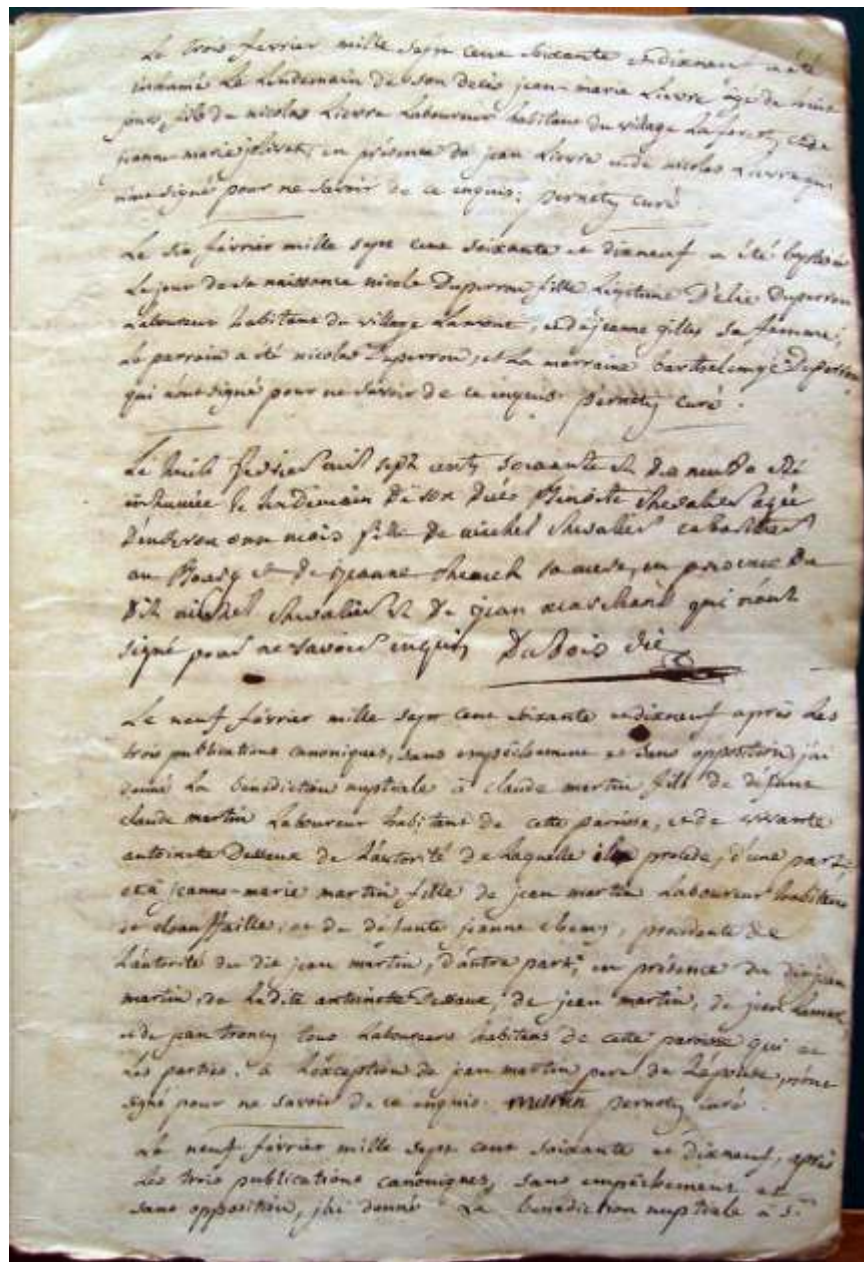 Le trois fevrier mille sept cent soixante et dixneuf a été
inhumé le lendemain de son decès jean-marie Lievre âgé de huit
jours, fils de nicolas Lievre Laboureur habitant du village Laforest, et de
jeanne-marie jolivet, en présence de jean Lievre et de nicolas Lievre qui
n'ont signé pour ne savoir de ce enquis: pernety curé
Le six fevrier mille sept cent soixante et dixneuf a été baptisée
Le jour de sa naissance nicole Duperron fille Legitime d'élie Duperron
Laboureur habitant du village Lamont, et de jeanne gilles sa femme;
Le parrain a été nicolas Duperron, et La marraine barthelemye Duperron
qui n'ont signé pour ne savoir de ce enquis. pernety curé.
Le huit fevrier mil sept cents soixante et dix neuf a été
inhumée le lendemain de son décès Benoite chevalier agée
d'environ onze mois fille de michel chevalier cabaretier
au Bourg et de jeanne sa mere, en presence du
dit michel chevalier et de jean marchand qui n'ont
signé pour ne savoir enquis Dubois vic
Le neuf février mille sept cent soixante et dixneuf après Les
trois publications canoniques, sans empêchement et sans opposition, j'ai
donné La bénédiction nuptiale à claude martin fils de défunt
claude martin Laboureur habitant de cette paroisse, et de vivante
antoinette Dessaux de L'autorité de Laquelle il procède, d'une part,
et à jeanne-marie martin fille de jean martin Laboureur habitant
de chauffaille, et de défunte jeanne , procedente de
L'autorité du dit jean martin, d'autre part; en présence du dit jean
martin, de Ladite antoinette Dessaux, de jean martin, de jean
et de jean troncy tous Laboureurs habitans de cette paroisse qui et
Les parties, à L'éxception de jean martin pere de L'épouse, n'ont
signé pour ne savoir de ce enquis. martin pernety curé.
Le neuf février mille sept cent soixante et dixneuf, après
Les trois publications canoniques, sans empêchement et
sans opposition, j'ai donné La bénédiction nuptiale à s.